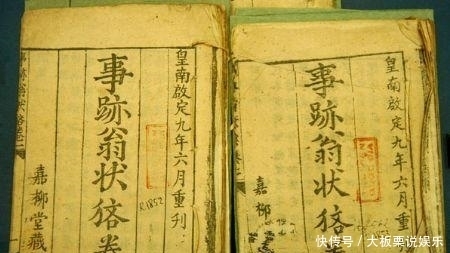 皇南啟定九年六月重刊
事跡翁狀𤞼卷
R.1852
嘉柳堂藏
皇南啟定九年六月重
事跡翁狀𤞼卷
嘉柳
快传号 / 大板栗说娱乐